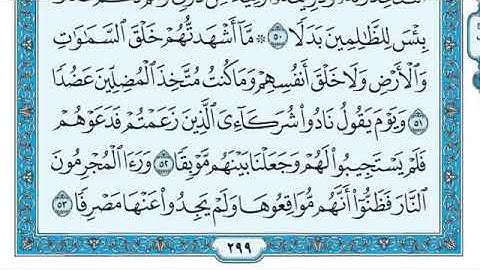 بِئْسَ لِلظَّٰلِمِينَ بَدَلًا ۝٥٠ ۞ مَّآ أَشْهَدتُّهُمْ خَلْقَ ٱلسَّمَٰوَٰتِ
وَٱلْأَرْضِ وَلَا خَلْقَ أَنفُسِهِمْ وَمَا كُنتُ مُتَّخِذَ ٱلْمُضِلِّينَ عَضُدًا
۝٥١ وَيَوْمَ يَقُولُ نَادُوا۟ شُرَكَآءِىَ ٱلَّذِينَ زَعَمْتُمْ فَدَعَوْهُمْ
فَلَمْ يَسْتَجِيبُوا۟ لَهُمْ وَجَعَلْنَا بَيْنَهُم مَّوْبِقًا ۝٥٢ وَرَءَا ٱلْمُجْرِمُونَ
ٱلنَّارَ فَظَنُّوٓا۟ أَنَّهُم مُّوَاقِعُوهَا وَلَمْ يَجِدُوا۟ عَنْهَا مَصْرِفًا ۝٥٣
٢٩٩